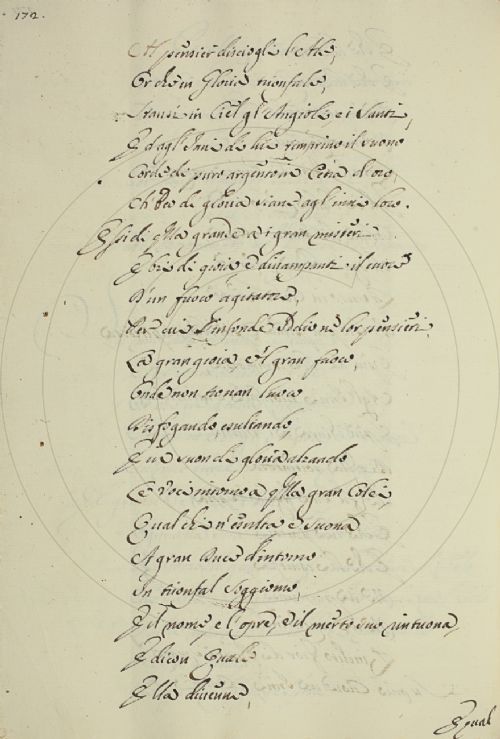 172.
Al pensier disciogli l'Ale,
Or che in Gloria trionfale,
Stansi in Ciel gl'Angioli e i Santi,
E d'agl'Inni de lui il suono
Corde di puro argento in Cetra d'oro,
Ch'Eco di gloria siano agl'inni loro.
Essi di q.lla grande a i gran misteri
E ebri di gioia, e divampanti il cuore
D'un fuoco agitatore,
Per cui s'infonde Iddio ne lor pensieri,
La gran gioia, e'l gran fuoco
Onde non trovan luoco
Disfogando esultando,
E in suon di gloria alzando
Le voci intorno a q.lla gran Colei,
Qual che n'esulta e suona
A gran Duce d'intorno
In trionfal Soggiorno,
E il nome, e l'opre, e il merto suo rintuona,
E dicon Quale
Ella divenne,
E qual